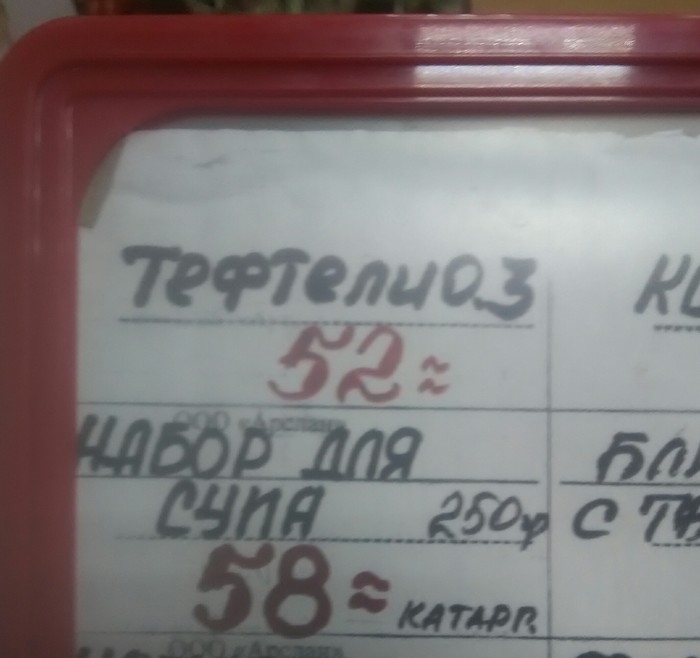 Тефтели 0.3
52=
ООО «Арслан»
НАБОР ДЛЯ
СУПА 250гр
58= КАТАРГ.
ООО «Арслан»
С